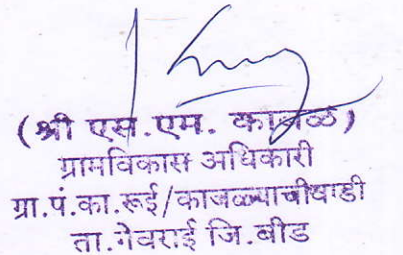 (श्री एस.एम. काजळे)
ग्रामविकास अधिकारी
ग्रा.पं.का.रूई/काजळ्याचीवाडी
ता.गेवराई जि.बीड